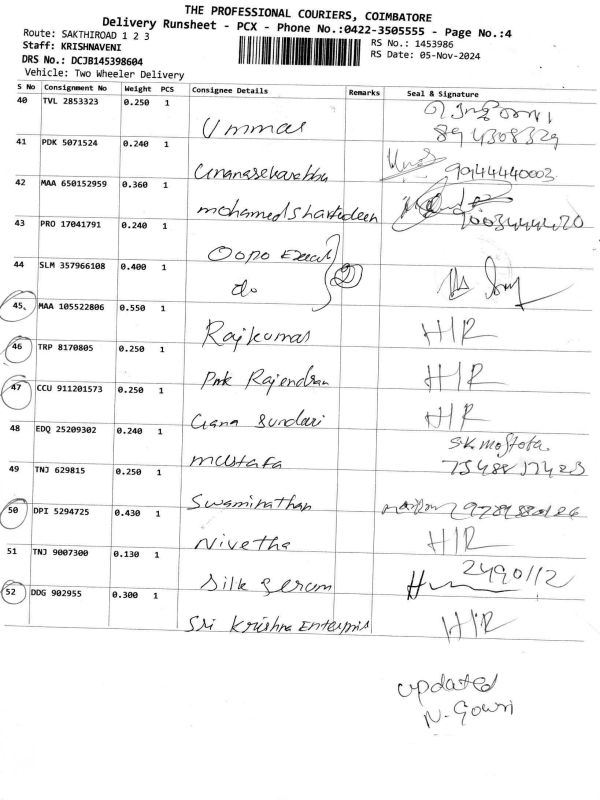 THE PROFESSIONAL COURIERS, COIMBATORE
Delivery Runsheet - PCX - Phone No.:0422-3505555 - Page No.:4
Route: SAKTHIROAD 1 2 3
Staff: KRISHNAVENI
RS No.: 1453986
DRS No.: DCJB145398604
RS Date: 05-Nov-2024
Vehicle: Two Wheeler Delivery
S No Consignment No Weight PCS Consignee Details Remarks Seal & Signature
40 TVL 2853323 0.250 1
Ummar 894308329
41 PDK 5071524 0.240 1
Gnanasekarebbu 9944440003
42 MAA 650152959 0.360 1
mohamed Sharfudeen 9003444420
43 PRO 17041791 0.240 1
Oopo
44 SLM 357966108 0.400 1
do 2
45 MAA 105522806 0.550 1
Rajkumar HIR
46 TRP 8170805 0.250 1
Pmk Rajendran HIR
47 CCU 911201573 0.250 1
Gana Sundari HIR
48 EDQ 25209302 0.240 1
mustafa S.K. Mostofa
49 TNJ 629815 0.250 1
Swaminathan
50 DPI 5294725 0.430 1
Nivetha HIR
51 TNJ 9007300 0.130 1
Silk Serum 2490112
52 DDG 902955 0.300 1
Sri Krishna Enterpris HIR
updated
N. Gowri